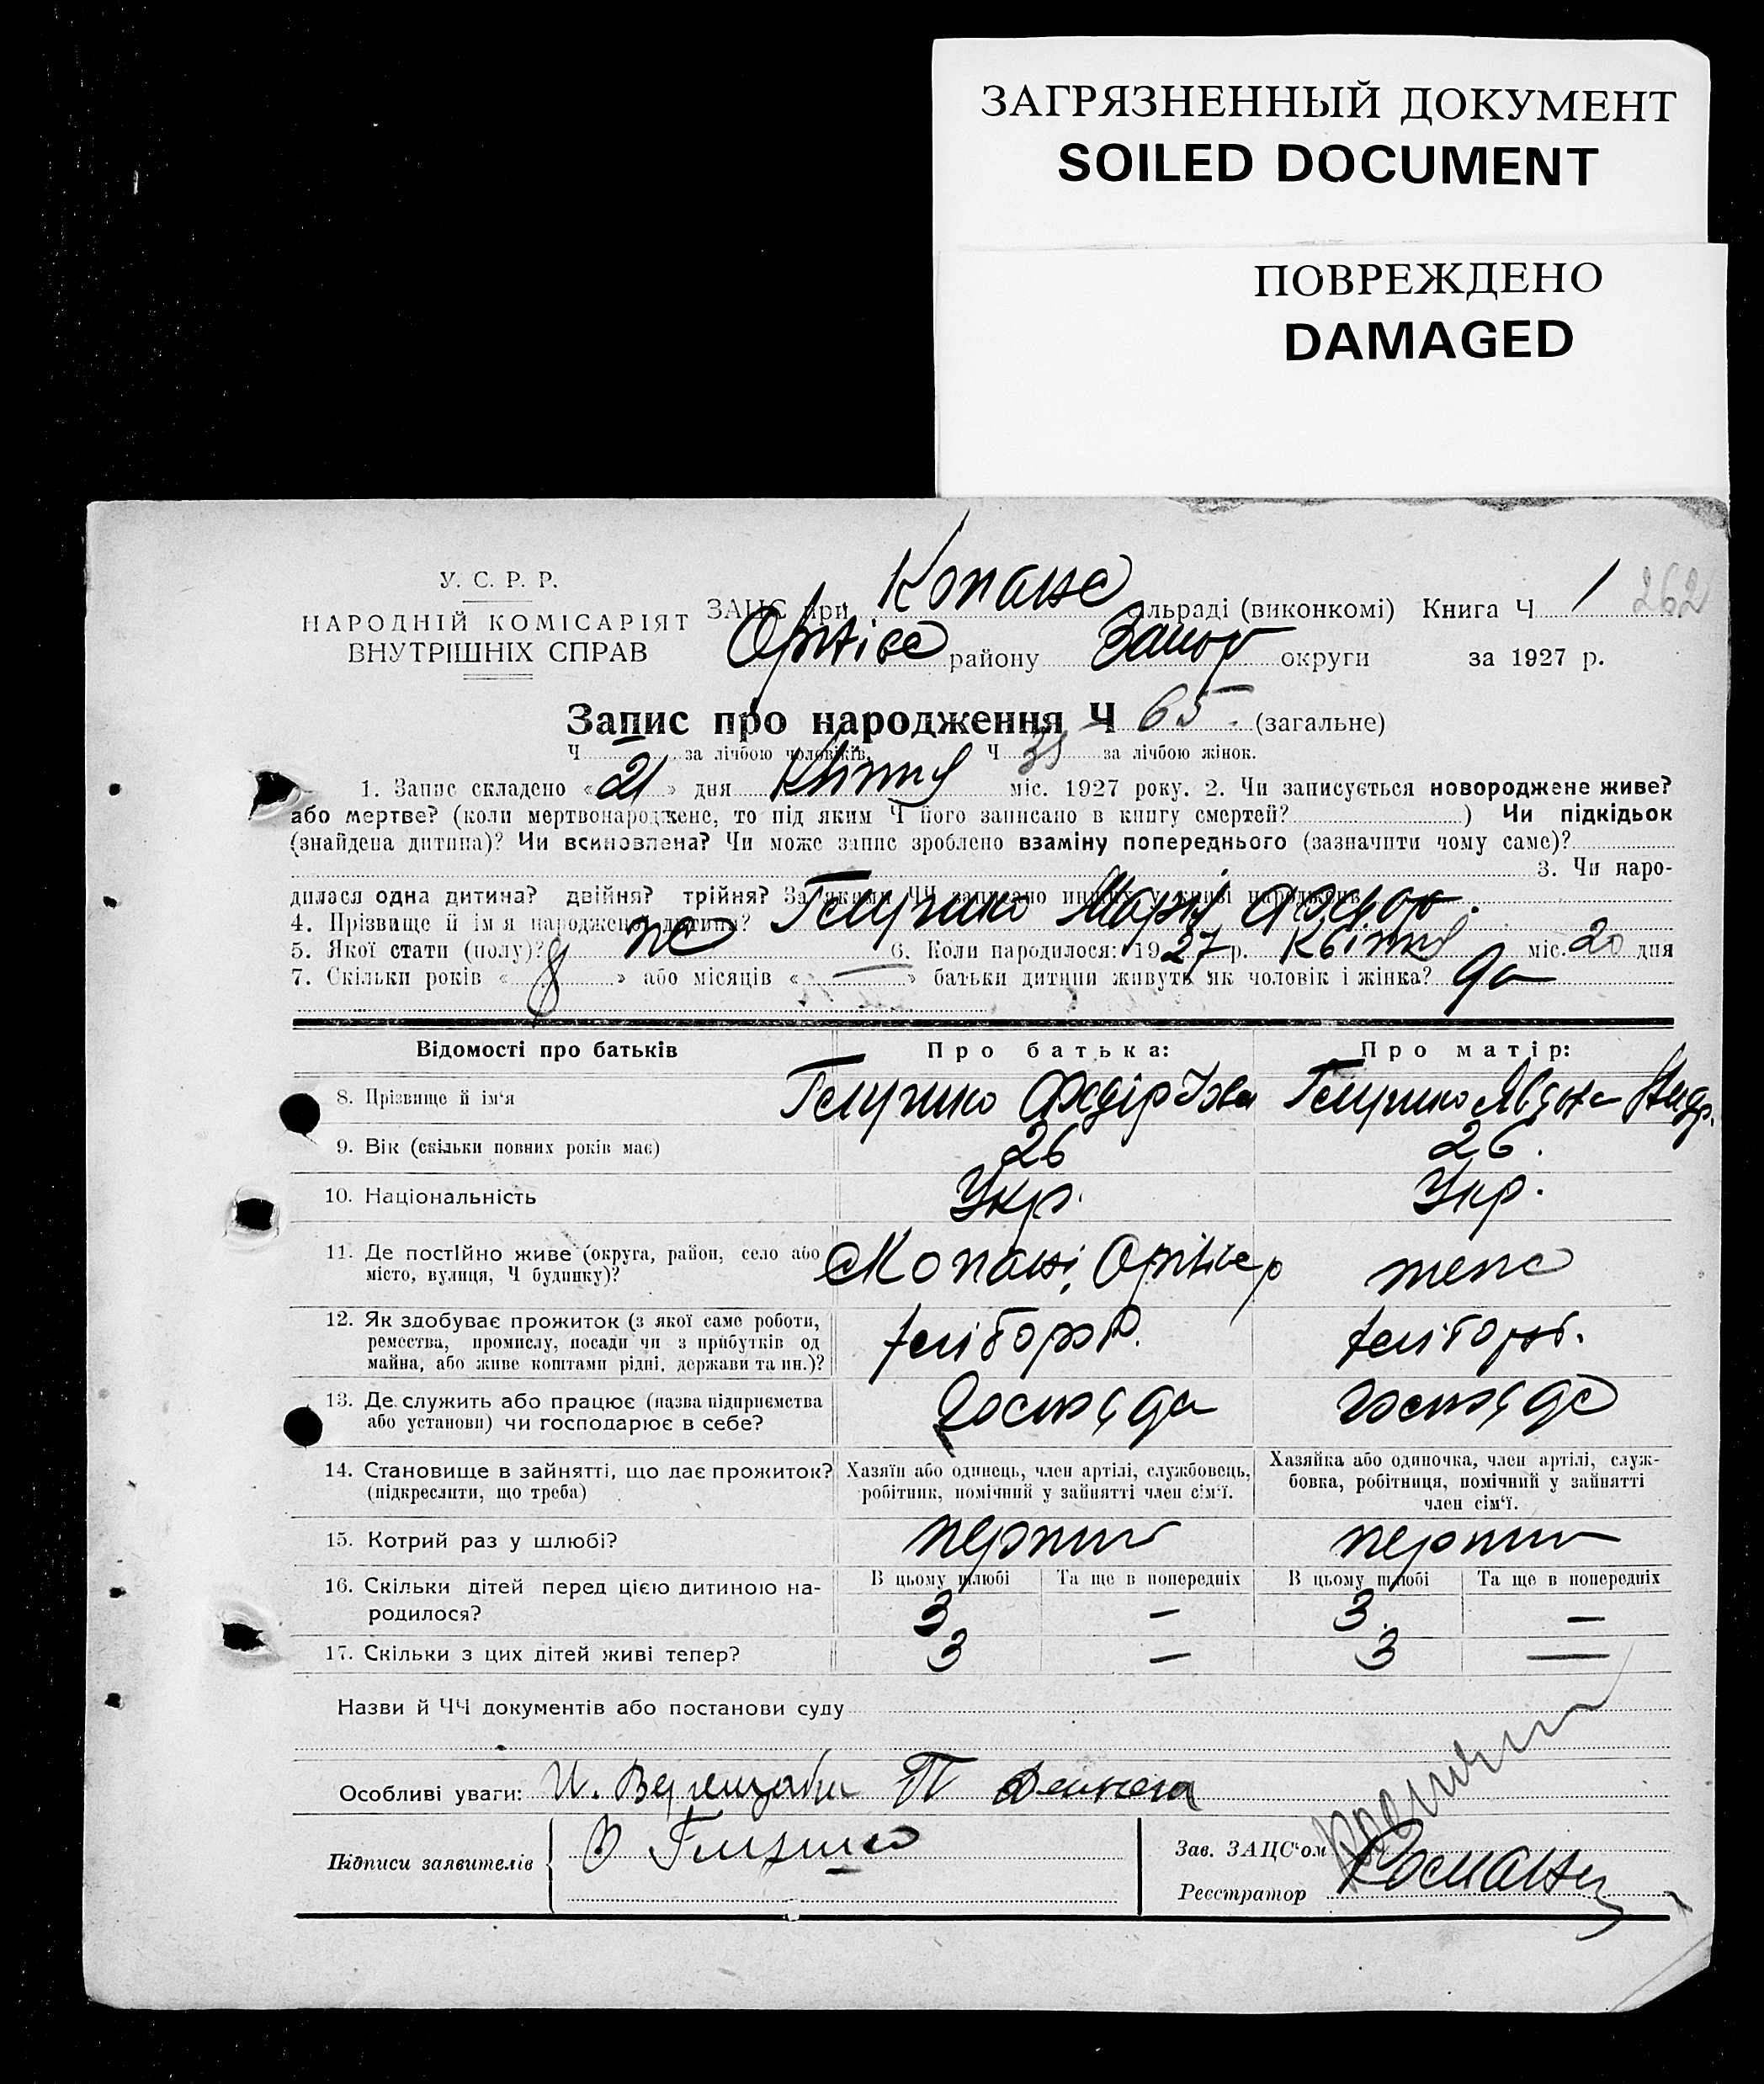 ЗАГРЯЗНЕННЫЙ ДОКУМЕНТ
SOILED DOCUMENT
ПОВРЕЖДЕНО
DAMAGED
У. С. Р. Р.
НАРОДНІЙ КОМІСАРІЯТ
ВНУТРІШНІХ СПРАВ
ЗАЦС при Копане сільраді (виконкомі) Книга Ч 1 262
Оріхівс району Запор округи за 1927 р.
Запис про народження Ч 65 (загальне)
Ч за лічбою чоловіків. Ч за лічбою жінок.
1. Запис складено « 21 » дня Квітня міс. 1927 року. 2. Чи записується новороджене живе?
або мертве? (коли мертвонароджене, то під яким Ч його записано в книгу смертей? ) Чи підкідьок
(знайдена дитина)? Чи всиновлена? Чи може запис зроблено взаміну попереднього (зазначити чому саме)?
3. Чи наро-
дилася одна дитина? двійня? трійня? За якими ЧЧ записано инших у книзі народжень
4. Прізвище й ім'я народженої дитини? Марія Федор.
5. Якої стати (полу)? ж 6. Коли народилося: 1927 р. Квітня міс. 20 дня
7. Скільки років « 8 » або місяців « — » батьки дитини живуть як чоловік і жінка? да
Відомості про батьків Про батька: Про матір:
8. Прізвище й ім'я Федір Іва Явдоха Андр.
9. Вік (скільки повних років має) 26 26.
10. Національність Укр. Укр.
11. Де постійно живе (округа, район, село або
місто, вулиця, Ч будинку)? Копані, Оріхів р теж
12. Як здобуває прожиток (з якої саме роботи,
ремества, промислу, посади чи з прибутків од
майна, або живе коштами рідні, держави та ин.)? хлібороб. хлібороб.
13. Де служить або працює (назва підприємства
або установи) чи господарює в себе?
14. Становище в зайнятті, що дає прожиток?
(підкреслити, що треба)
Хазяїн або одинець, член артілі, службовець,
робітник, помічний у зайнятті член сім'ї.
Хазяйка або одиночка, член артілі, служ-
бовка, робітниця, помічний у зайнятті
член сім'ї.
15. Котрий раз у шлюбі? перший перший
16. Скільки дітей перед цією дитиною на-
родилося?
В цьому шлюбі Та ще в попередніх В цьому шлюбі Та ще в попередніх
3 — 3. —
17. Скільки з цих дітей живі тепер? 3 — 3 —
Назви й ЧЧ документів або постанови суду
Особливі уваги:
Підписи заявителів
Зав. ЗАЦС'ом
Реєстратор